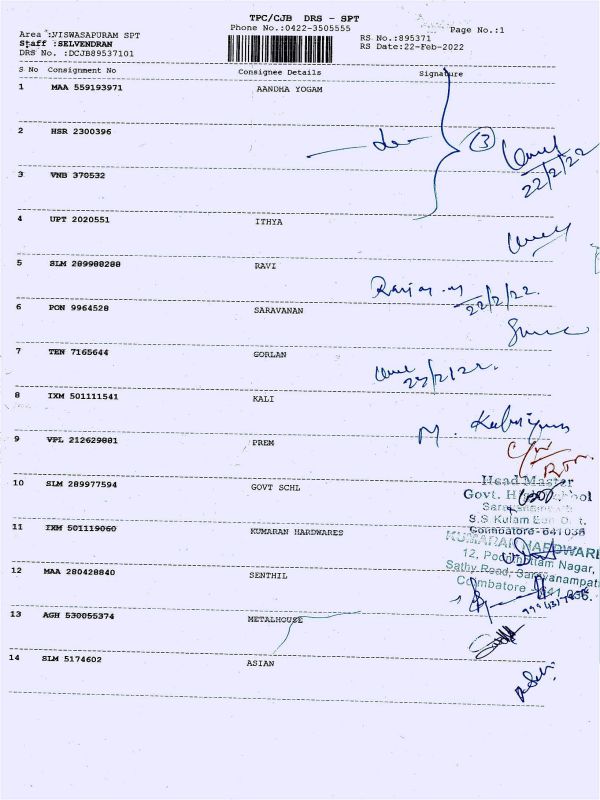 TPC/CJB DRS - SPT
Phone No.:0422-3505555
Page No.:1
Area :VISWASAPURAM SPT
Staff :SELVENDRAN
DRS No. :DCJB89537101
RS No.:895371
RS Date:22-Feb-2022
S No Consignment No Consignee Details Signature
1 MAA 559193971 AANDHA YOGAM
2 HSR 2300396
3
22/2/22
3 VNB 370532
4 UPT 2020551 ITHYA
5 SLM 289988288 RAVI
22/2/22.
6 PON 9964528 SARAVANAN
7 TEN 7165644 GORLAN
22/2/22.
8 IXM 501111541 KALI
M.
9 VPL 212629881 PREM
10 SLM 289977594 GOVT SCHL
Head Master
Govt. High School
S.S Kulam
Coimbatore - 641035
11 IXM 501119060 KUMARAN HARDWARES
KUMARAN HARDWARE
12, Nagar,
Sathy Road, Saravanampat
Coimbatore - 641 035.
12 MAA 280428840 SENTHIL
13 AGH 530055374 METALHOUZE
14 SLM 5174602 ASIAN